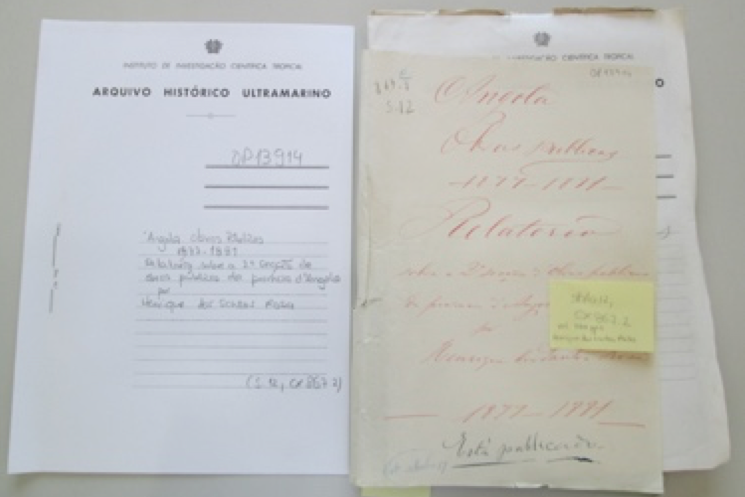 INSTITUTO DE INVESTIGAÇÃO CIENTÍFICA TROPICAL
ARQUIVO HISTÓRICO ULTRAMARINO
OP13914
Angola Obras Públicas
1877-1881
Relatório sobre a 2ª secção de
obras públicas da província d'Angola
por
Henrique dos Santos Rosa
(S. 12, CX 867 2)
INSTITUTO DE INVESTIGAÇÃO CIENTÍFICA TROPICAL
OP13914
S.12
Angola
Obras publicas
-1877-1881-
Relatorio
sobre a Obras publicas
da provincia d'Angola
por
Henrique dos Santos Rosa
-1877-1881-
Está publicado.
CX 867.2
Henrique dos Santos Rosa